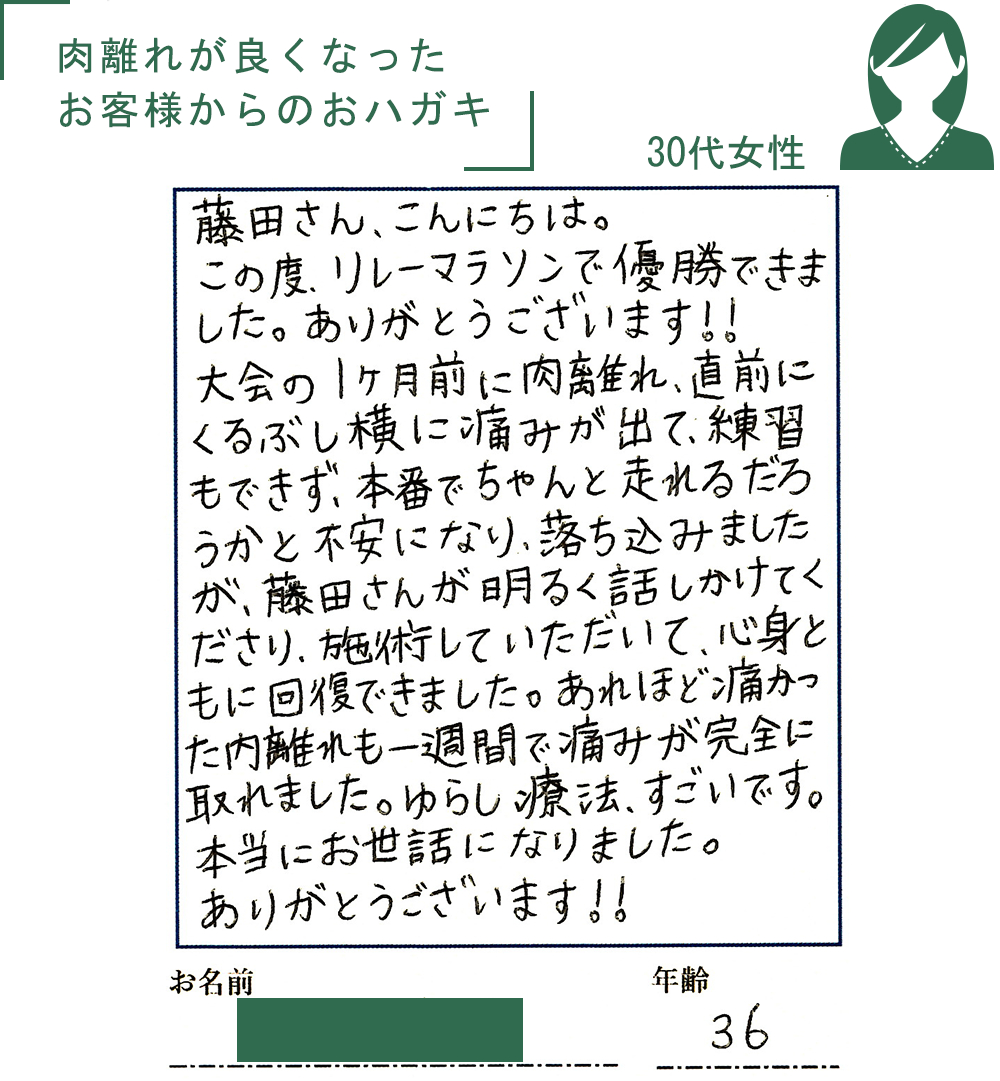 肉離れが良くなった
お客様からのおハガキ
30代女性
藤田さん、こんにちは。
この度、リレーマラソンで優勝できま
した。ありがとうございます!!
大会の1ヶ月前に肉離れ、直前に
くるぶし横に痛みが出て、練習
もできず、本番でちゃんと走れるだろ
うかと不安になり、落ち込みました
が、藤田さんが明るく話しかけてく
ださり、施術していただいて、心身と
もに回復できました。あれほど痛かっ
た肉離れも一週間で痛みが完全に
取れました。ゆらし療法、すごいです。
本当にお世話になりました。
ありがとうございます!!
お名前
年齢
36